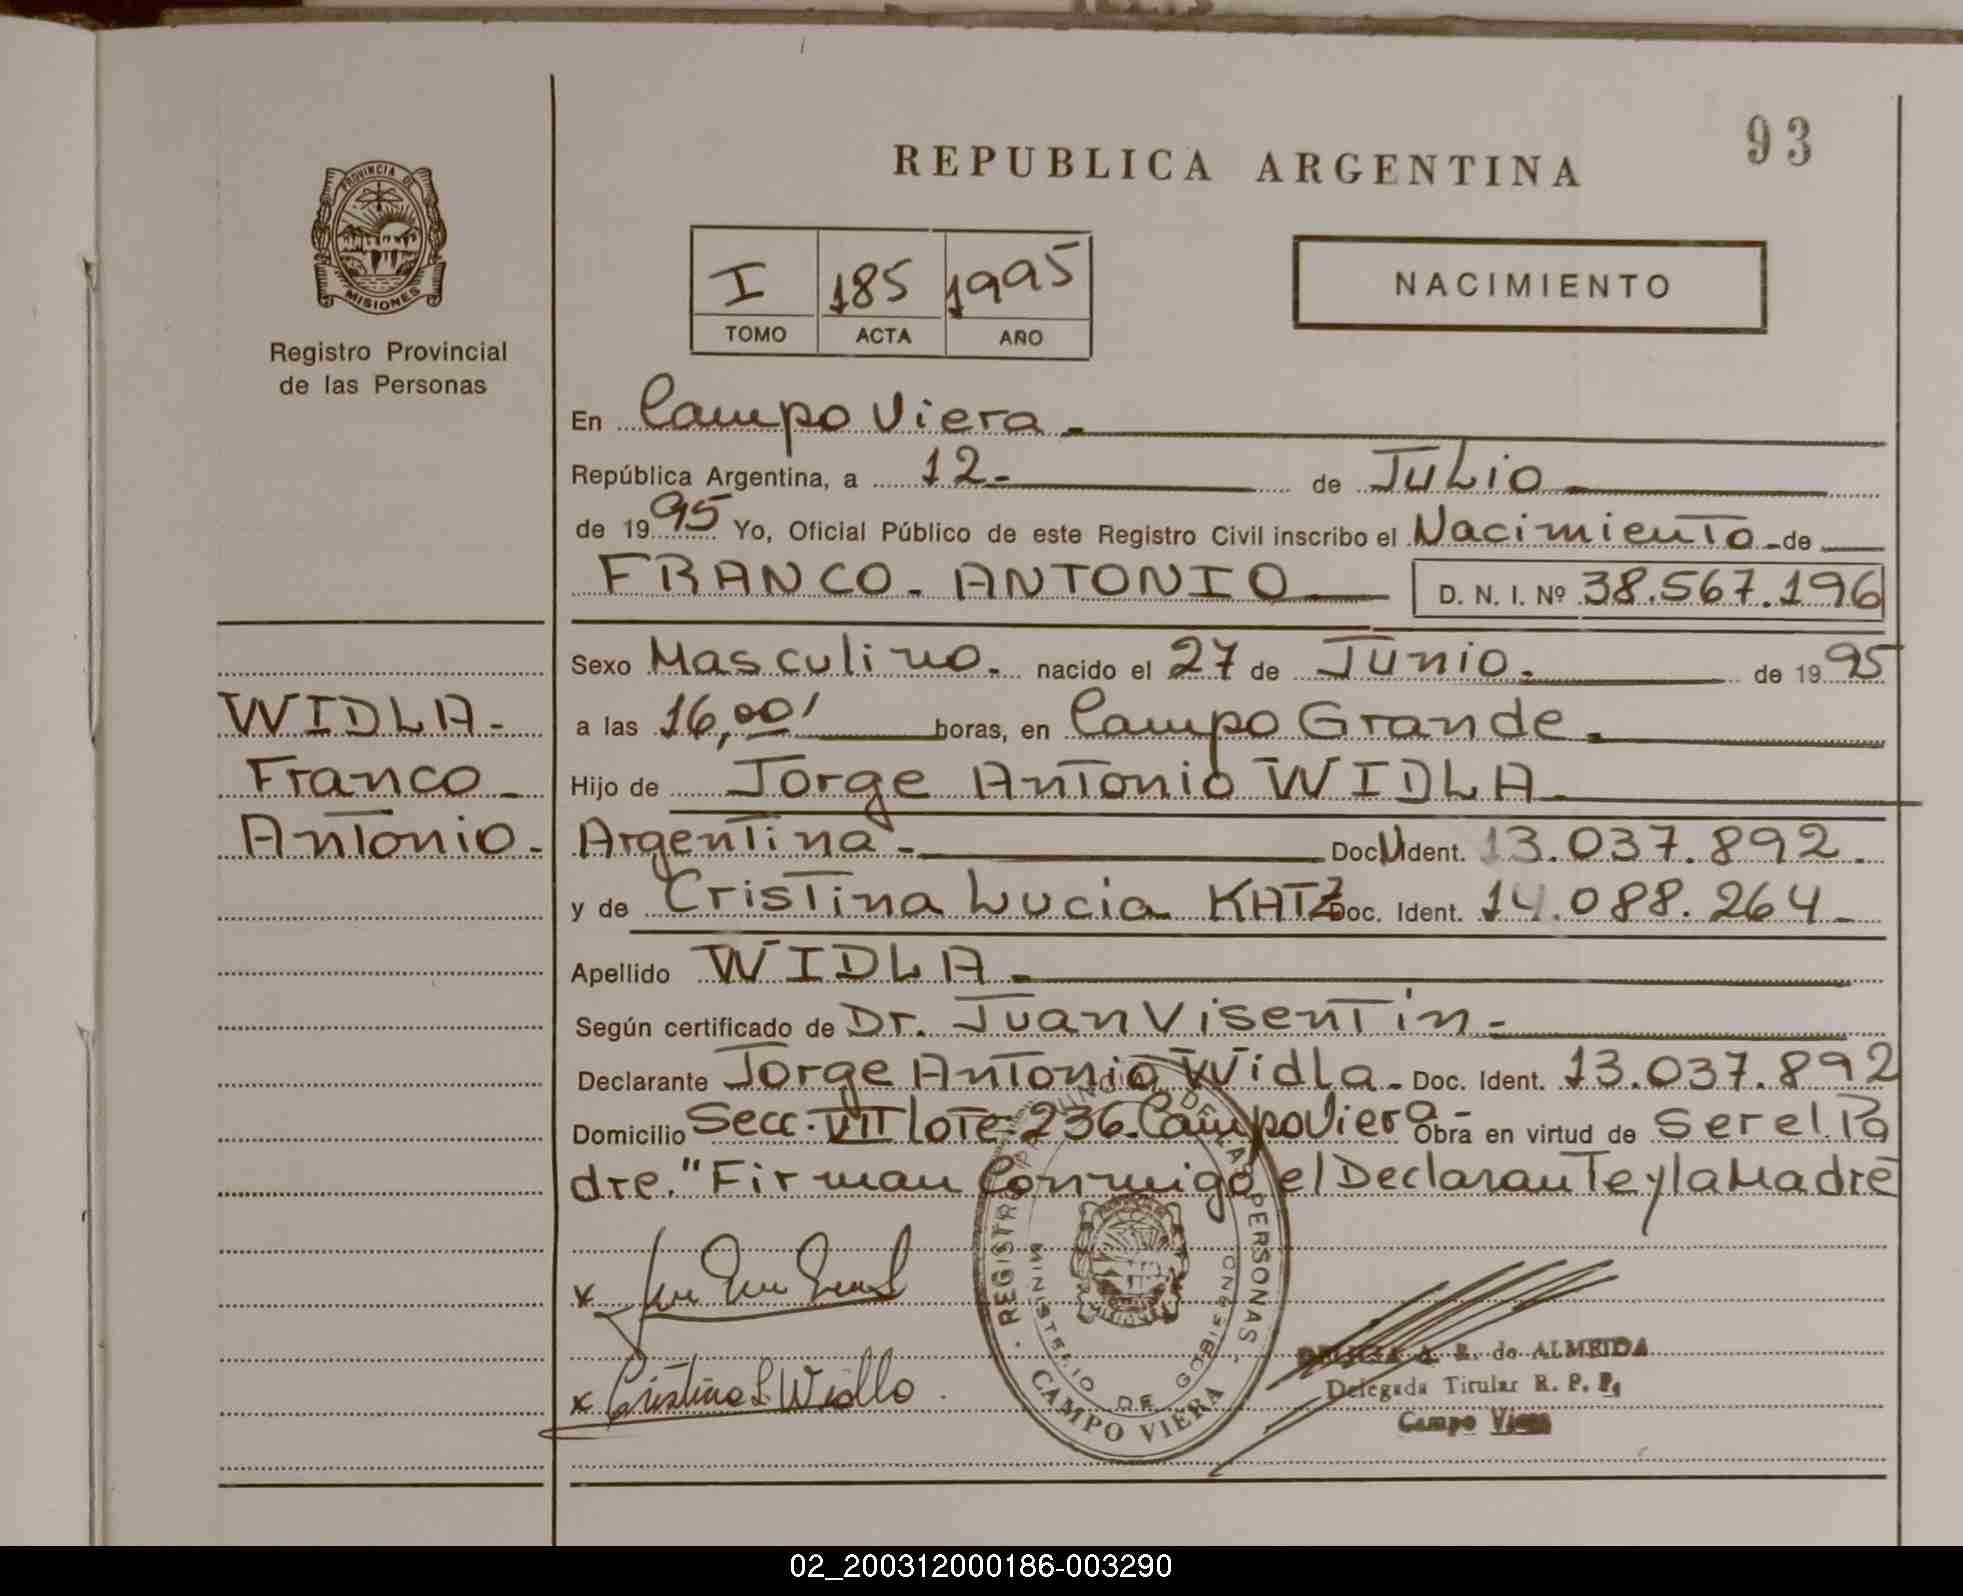 93
REPUBLICA ARGENTINA
PROVINCIA DE
MISIONES
Registro Provincial
de las Personas
I 185 1995
TOMO ACTA AÑO
NACIMIENTO
En Campo Viera.
República Argentina, a 12- de Julio
de 1995 Yo, Oficial Público de este Registro Civil inscribo el Nacimiento de
FRANCO. ANTONIO D. N. I. Nº 38.567.196
Sexo Masculino. nacido el 27 de Junio. de 1995
a las 16,00' horas, en Campo Grande.
Hijo de Jorge Antonio WIDLA
Argentina - Doc. Ident. 13.037.892
y de Cristina Lucia KATZ Doc. Ident. 14.088.264
Apellido WIDLA
Según certificado de Dr. Juan Visentin
Declarante Jorge Antonio Widla. Doc. Ident. 13.037.892
Domicilio Secc. VII lote 236 Campo Viera Obra en virtud de ser el Pa
dre. "Firman Conmigo el Declarante y la Madre
WIDLA-
Franco
Antonio.
x
x Cristina L Widla
REGISTRO PROVINCIAL DE LAS PERSONAS
MINISTERIO DE GOBIERNO
CAMPO VIERA
A. R. de ALMEIDA
Delegada Titular R. P. P.
Campo Viera
02_200312000186-003290